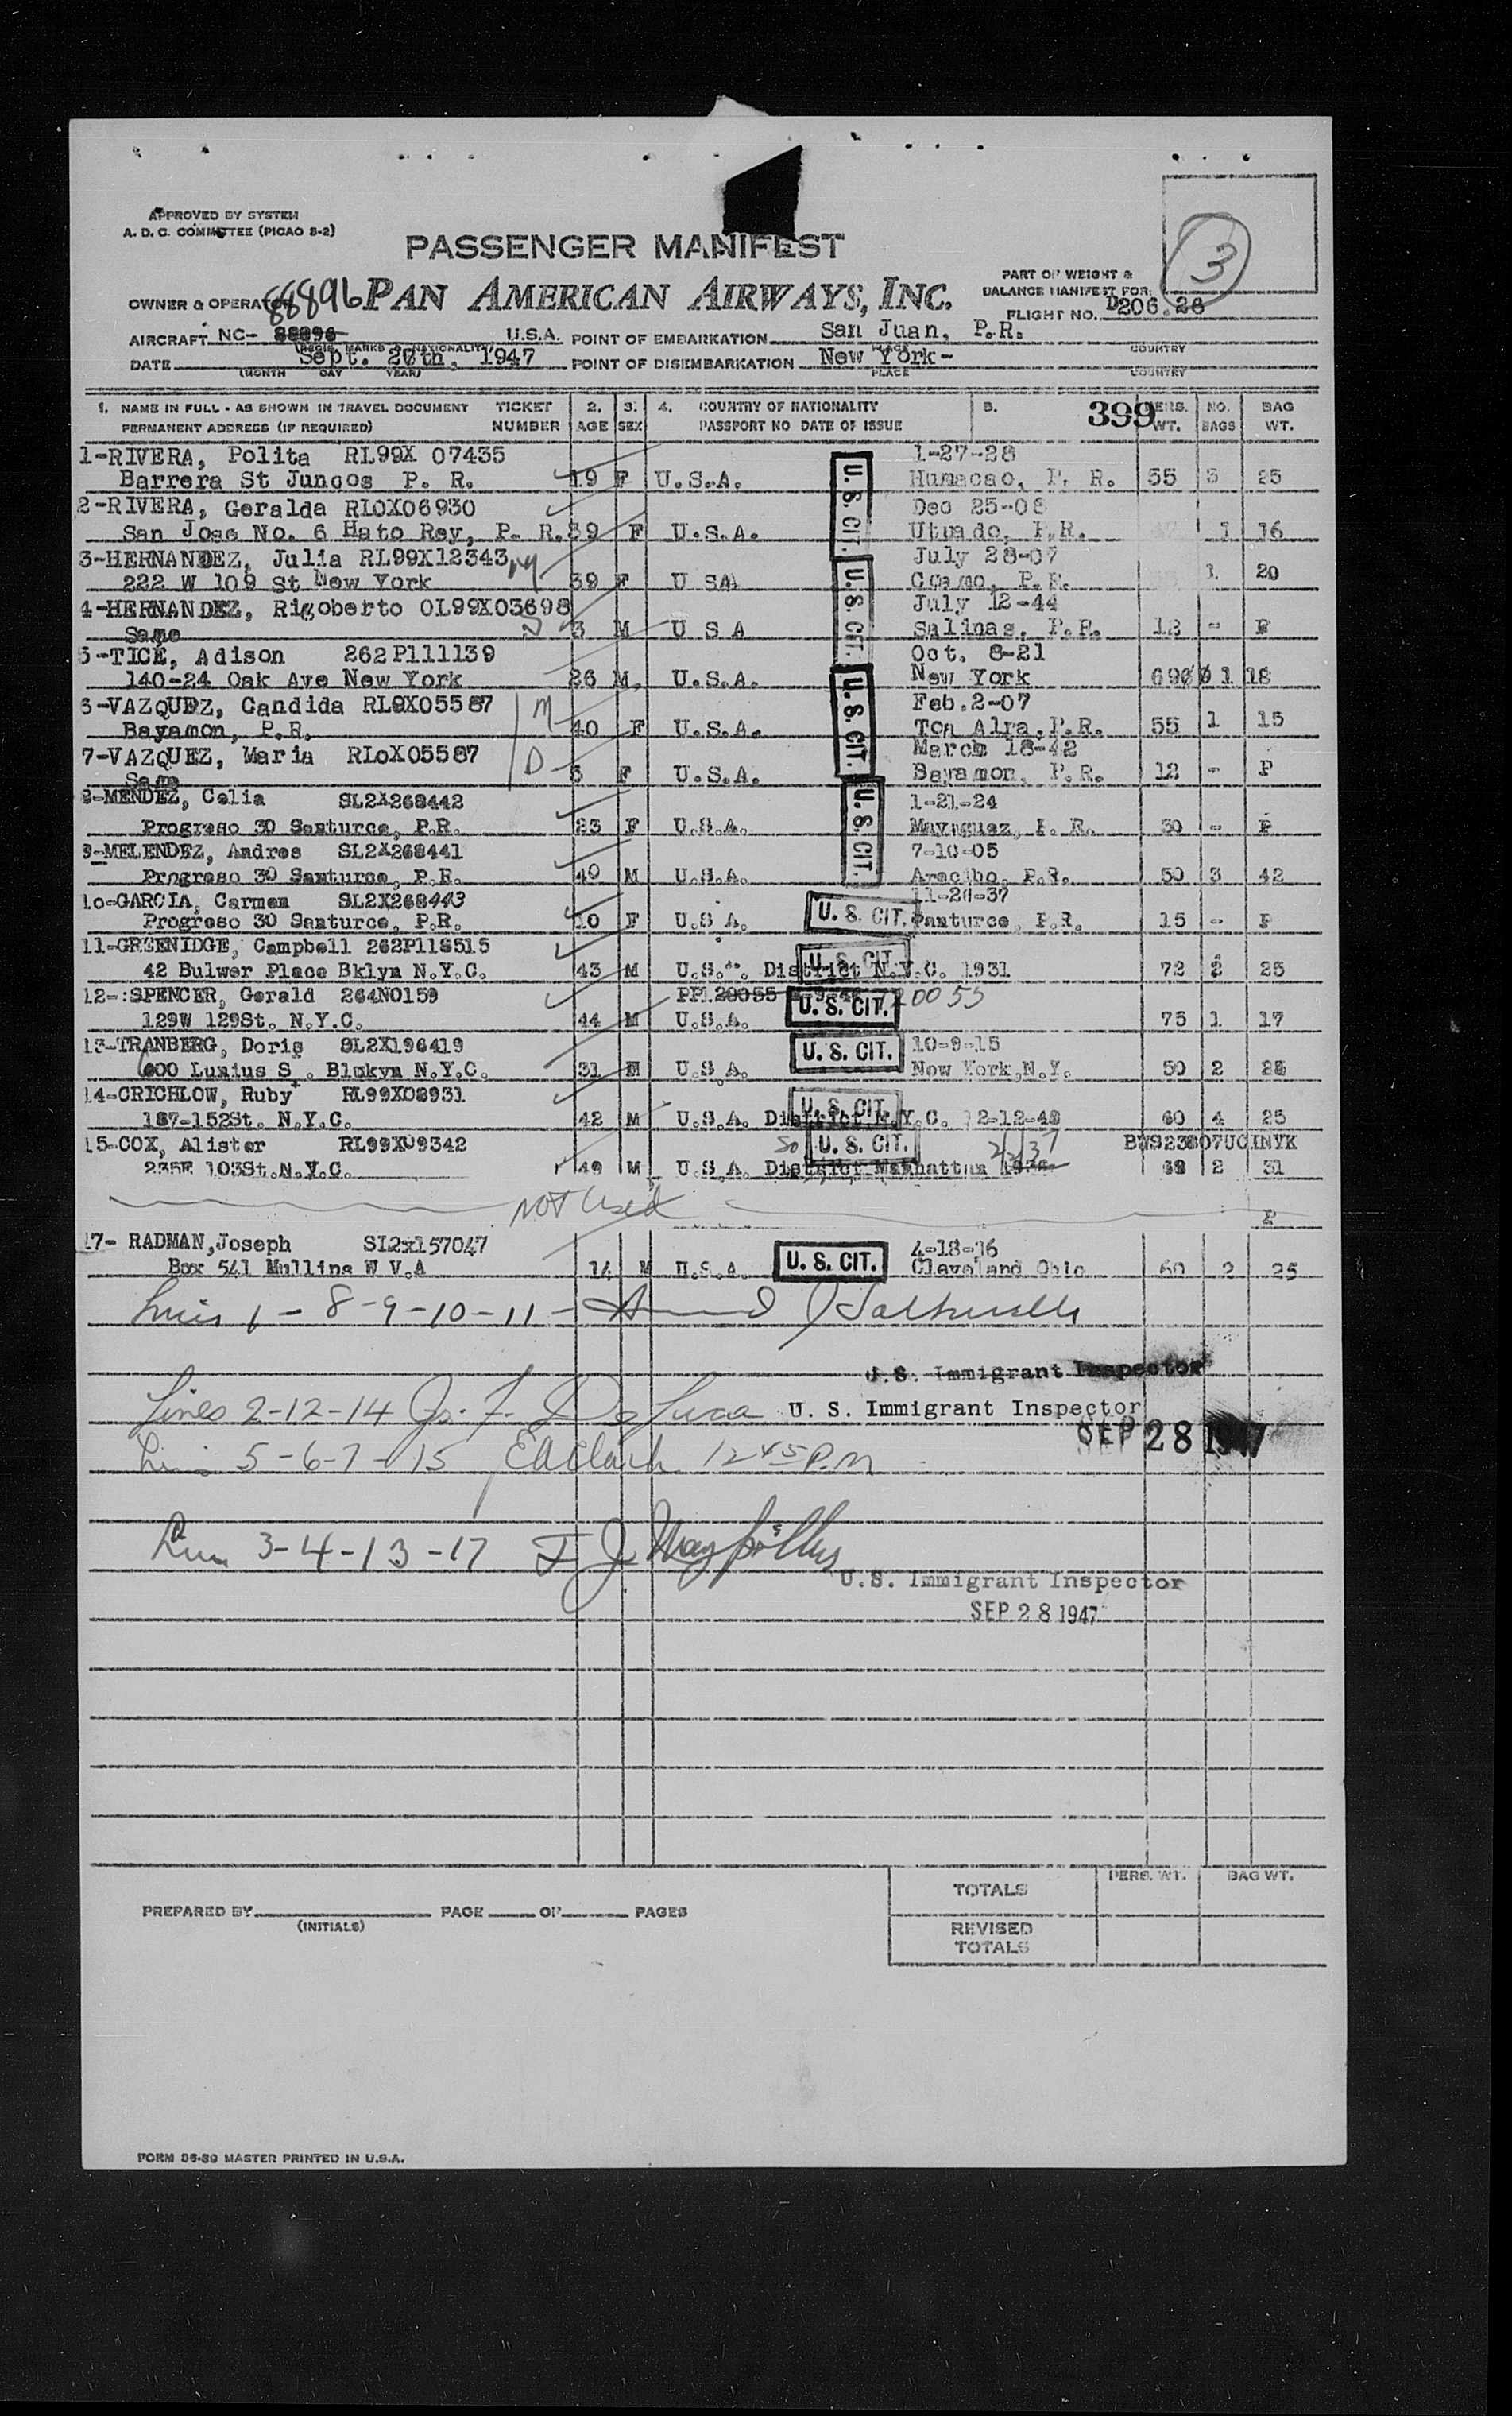 APPROVED BY SYSTEM
A. D. C. COMMITTEE (PICAO 8-2)
3
PASSENGER MANIFEST
PART OF WEIGHT &
BALANCE MANIFEST FOR:
OWNER & OPERATOR 88896 PAN AMERICAN AIRWAYS, INC.
FLIGHT NO. D206.26
AIRCRAFT NC- 88896 U.S.A. POINT OF EMBARKATION San Juan, P.R.
(REGIS. MARKS & NATIONALITY) PLACE COUNTRY
DATE Sept. 28th, 1947 POINT OF DISEMBARKATION New York-
(MONTH DAY YEAR) PLACE COUNTRY
1. NAME IN FULL - AS SHOWN IN TRAVEL DOCUMENT TICKET 2. 3. 4. COUNTRY OF NATIONALITY 5. 399 PERS. NO. BAG
PERMANENT ADDRESS (IF REQUIRED) NUMBER AGE SEX PASSPORT NO DATE OF ISSUE WT. BAGS WT.
1-RIVERA, Polita RL99X 07435 1-27-28
Barrera St Juncos P. R. 19 F U.S.A. U. S. CIT. Humacao, P. R. 55 3 25
2-RIVERA, Geralda RLOX06930 Dec 25-08
San Jose No. 6 Hato Rey, P. R. 39 F U.S.A. Utuado, P.R. 1 16
3-HERNANDEZ, Julia RL99X12343 M July 28-07
222 W 109 St New York 39 F U SA U. S. CIT. Coamo, P.R. 1 20
4-HERNANDEZ, Rigoberto OL99X03698 July 12-44
Same 3 M U S A Salinas, P.R. 12 - F
5-TICE, Adison 262P111139 Oct. 8-21
140-24 Oak Ave New York 26 M. U.S.A. U. S. CIT. New York 1 18
6-VAZQUEZ, Candida RL9X05587 M Feb.2-07
Bayamon, P.R. 40 F U.S.A. Toa Alra, P.R. 55 1 15
7-VAZQUEZ, Maria RLoX05587 D March 18-42
Same 5 F U.S.A. Bayamon, P.R. 12 - P
8-MENDEZ, Celia SL2X268442 1-21-24
Progreso 30 Santurce, P.R. 23 F U.S.A. U. S. CIT. Mayaguez, P. R. 30 - P
9-MELENDEZ, Andres SL2X268441 7-10-05
Progreso 30 Santurce, P.R. 40 M U.S.A. Arecibo, P.R. 50 3 42
10-GARCIA, Carmen SL2X268443 11-26-37
Progreso 30 Santurce, P.R. 10 F U.S A. U. S. CIT. Santurce, P.R. 15 - P
11-GREENIDGE, Campbell 262P118515 U. S. CIT.
42 Bulwer Place Bklyn N.Y.C. 43 M U.S.A. District N.Y.C. 1931 72 2 25
12-:SPENCER, Gerald 264N0159 PP. 20055
129W 129St. N.Y.C. 44 M U.S.A. U. S. CIT. 75 1 17
13-TRANBERG, Doris SL2X196419 10-9-15
600 Lunius S . Blokyn N.Y.C. 31 U.S.A. U. S. CIT. New York,N.Y. 50 2
14-CRICHLOW, Ruby RL99X08931 U. S. CIT.
187-152St. N.Y.C. 42 M U.S.A. District N.Y.C. 60 4 25
15-COX, Alister RL99X09342 U. S. CIT. BWS23807UCINYK
235E 103St.N.Y.C. 49 M U.S.A. District Manhattan 2 31
NOT Used
P
17- RADMAN,Joseph SL2x157047 4-18-
Box 541 Mullins W V.A 14 M U.S.A. U. S. CIT. Cleveland Ohio 60 2 25
Lines 1-8-9-10-11-
U.S. Immigrant Inspector
Lines 2-12-14 U. S. Immigrant Inspector
SEP 28 1947
5-6-7-15 1245 P.M
3-4-13-17
U.S. Immigrant Inspector
SEP 28 1947
TOTALS PERS. WT. BAG WT.
PREPARED BY PAGE OF PAGES
(INITIALS)
REVISED
TOTALS
FORM 86-89 MASTER PRINTED IN U.S.A.